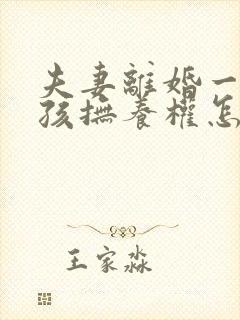 夫妻離婚一
孩撫養權怎
王家淼